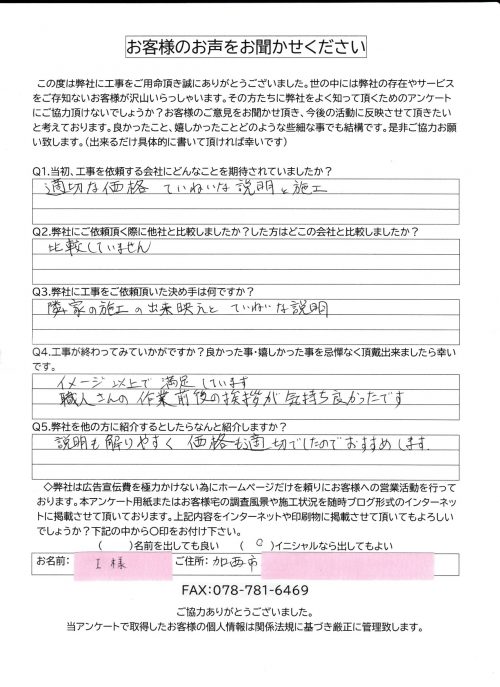 お客様のお声をお聞かせください
この度は弊社に工事をご用命頂き誠にありがとうございました。世の中には弊社の存在やサービス
をご存知ないお客様が沢山いらっしゃいます。その方たちに弊社をよく知って頂くためのアンケート
にご協力頂けないでしょうか?お客様のご意見をお聞かせ頂き、今後の活動に反映させて頂きたい
と考えております。良かったこと、嬉しかったことどのような些細な事でも結構です。是非ご協力お願
い致します。(出来るだけ具体的に書いて頂ければ幸いです)
Q1.当初、工事を依頼する会社にどんなことを期待されていましたか?
適切な価格 ていねいな説明と施工
Q2.弊社にご依頼頂く際に他社と比較しましたか?した方はどこの会社と比較しましたか?
比較していません
Q3.弊社に工事をご依頼頂いた決め手は何ですか?
隣家の施工の出来映えと ていねいな説明
Q4.工事が終わってみていかがですか?良かった事・嬉しかった事を忌憚なく頂戴出来ましたら幸い
です。
イメージ以上で満足しています
職人さんの作業前後の挨拶が気持ち良かったです
Q5.弊社を他の方に紹介するとしたらなんと紹介しますか?
説明も解りやすく 価格も適切でしたのでおすすめします.
◇弊社は広告宣伝費を極力かけない為にホームページだけを頼りにお客様への営業活動を行って
おります。本アンケート用紙またはお客様宅の調査風景や施工状況を随時ブログ形式のインターネッ
トに掲載させて頂いております。上記内容をインターネットや印刷物に掲載させて頂いてもよろしい
でしょうか?下記の中から〇印をお付け下さい。
( )名前を出しても良い (○)イニシャルなら出してもよい
お名前: I 様 ご住所: 加西市
FAX:078-781-6469
ご協力ありがとうございました。
当アンケートで取得したお客様の個人情報は関係法規に基づき厳正に管理致します。